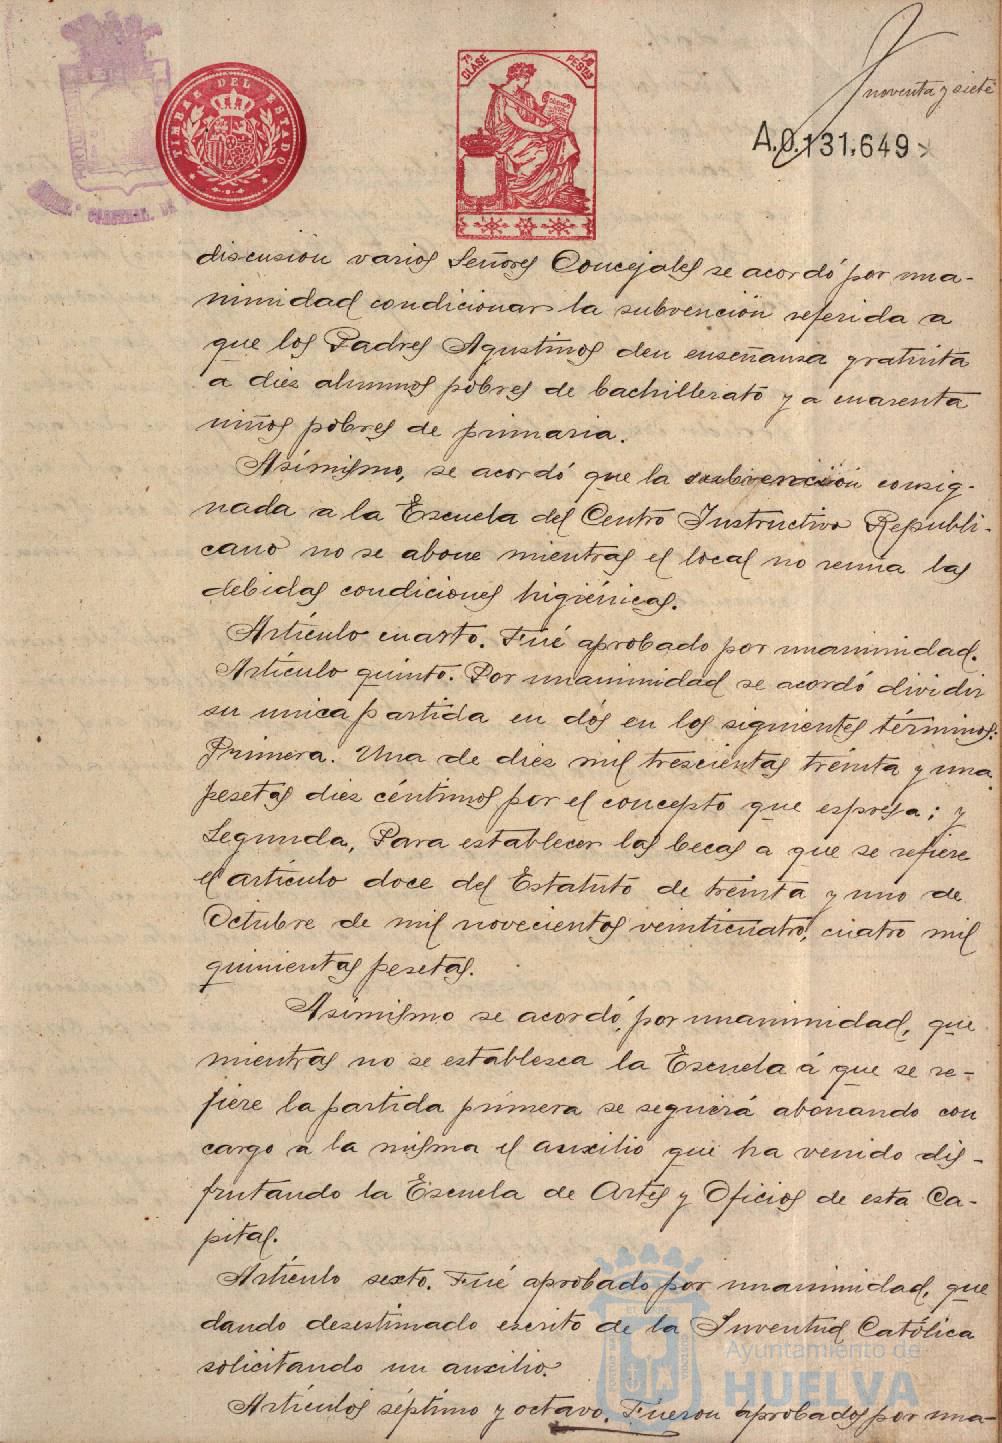 noventa y siete
7ª CLASE
PESTAS
TIMBRE DEL ESTADO
A.0.131.649
discusión varios Señores Concejales se acordó por una-
nimidad condicionar la subvención referida a
que los Padres Agustinos den enseñansa gratuita
a dies alumnos pobres de bachillerato y a cuarenta
niños pobres de primaria.
Asímismo, se acordó que la subvención consig-
nada a la Escuela del Centro Instructivo Republi-
cano no se abone mientras el local no reuna las
debidas condiciones higiénicas.
Artículo cuarto. Fué aprobado por unanimidad.
Artículo quinto. Por unanimidad se acordó dividir
su unica partida en dós en los siguientes términos:
Primera. Una de dies mil trescientas treinta y una
pesetas dies céntimos por el concepto que espresa; y
Segunda, Para establecer las becas a que se refiere
el artículo doce del Estatuto de treinta y uno de
Octubre de mil novecientos veinticuatro, cuatro mil
quinientas pesetas.
Asímismo se acordó, por unanimidad, que
mientras no se establesca la Escuela á que se re-
fiere la partida primera se seguirá abonando con
cargo a la misma el auxilio que ha venido dis-
frutando la Escuela de Artes y Oficios de esta Ca-
pital.
Artículo sexto. Fué aprobado por unanimidad, que
dando desestimado escrito de la Juventud Católica
solicitando un auxilio.
Artículos séptimo y octavo. Fueron aprobados por una-
Ayuntamiento de
HUELVA